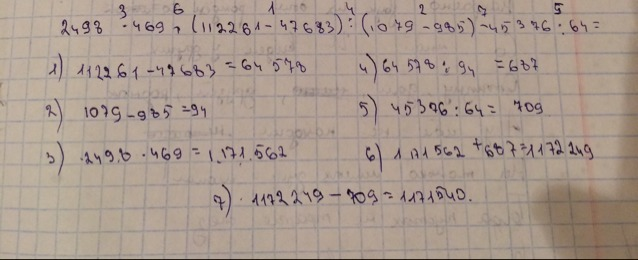 3 6 1 4 2 7 5
2498 · 469 + (112261 - 47683) : (1079 - 985) - 45376 : 64 =
1) 112261 - 47683 = 64578
4) 64578 : 94 = 687
2) 1079 - 985 = 94
5) 45376 : 64 = 709
3) 2498 · 469 = 1.171.562
6) 1171562 + 687 = 1172249
7) 1172249 - 709 = 1171540.